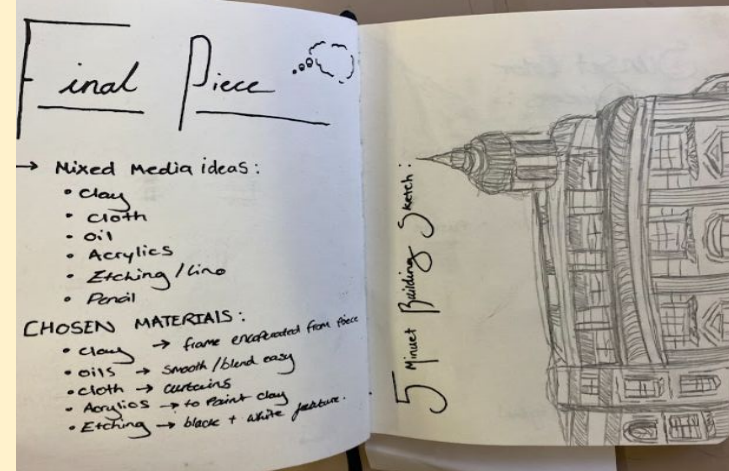 Final Piece
→ Mixed Media ideas:
• Clay
• Cloth
• Oil
• Acrylics
• Etching/Lino
• Pencil
CHOSEN MATERIALS:
• Clay → frame encaperated from piece
• oils → smooth/blend easy
• cloth → curtains
• Acrylics → to Paint clay
• Etching → black + white feature.
5 Minuet Building Sketch: